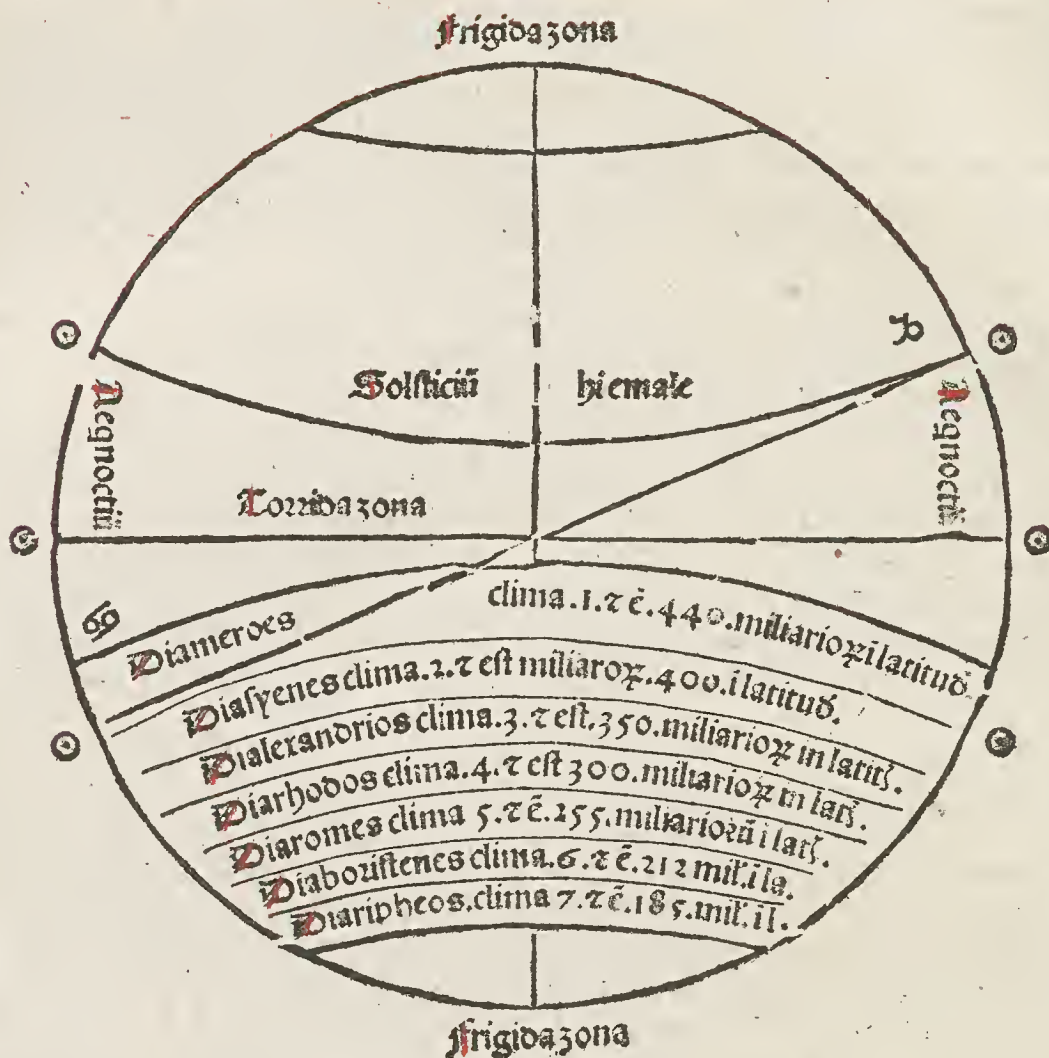 Frigida zona
♑
Solsticiū hiemale
Aeqnoctiū
Aeqnoctiū
Torrida zona
♋
Diameroes clima.1.⁊ ē.440.miliarioꝝ ī latitud̄
Diasyenes clima.2.⁊ est miliaroꝝ.400.ī latitud̄.
Dialexandrios clima.3.⁊ est.350.miliarioꝝ in latitꝭ.
Diarhodos clima.4.⁊ est 300.miliarioꝝ in latꝭ.
Diaromes clima 5.⁊ ē.255.miliariorū ī latꝭ.
Diaboristenes clima.6.⁊ ē.212 mil̄.ī la.
Diaripheos.clima 7.⁊ ē.185.mil̄.ī l.
Frigida zona